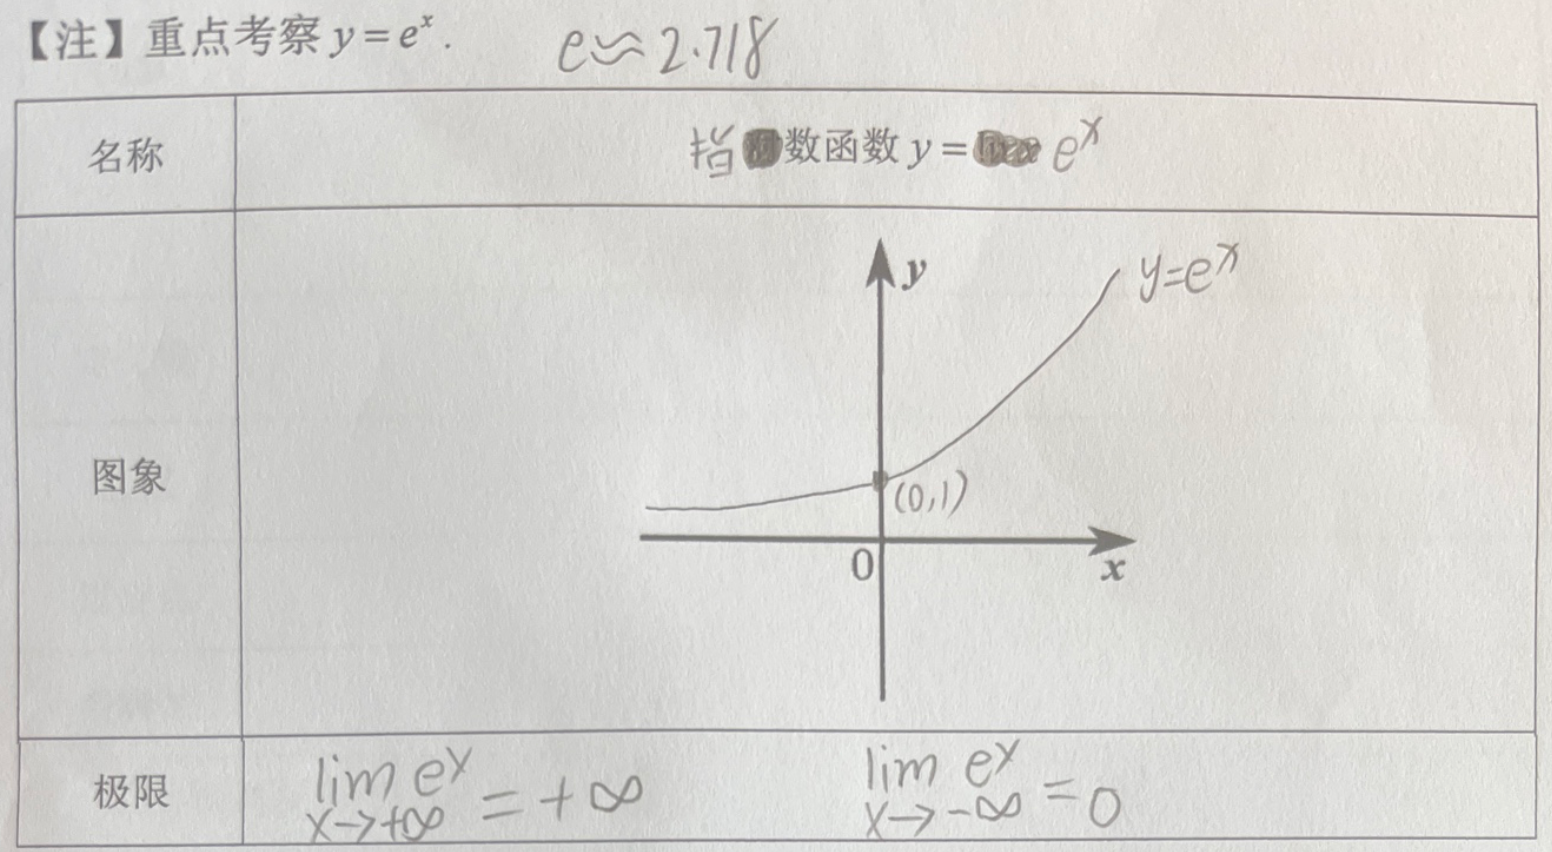 【注】重点考察 y=eˣ. e≈2.718
名称 指数函数 y= eˣ
y y=eˣ
图象
(0,1)
0 x
极限 lim eˣ = +∞ lim eˣ = 0
x→+∞ x→-∞